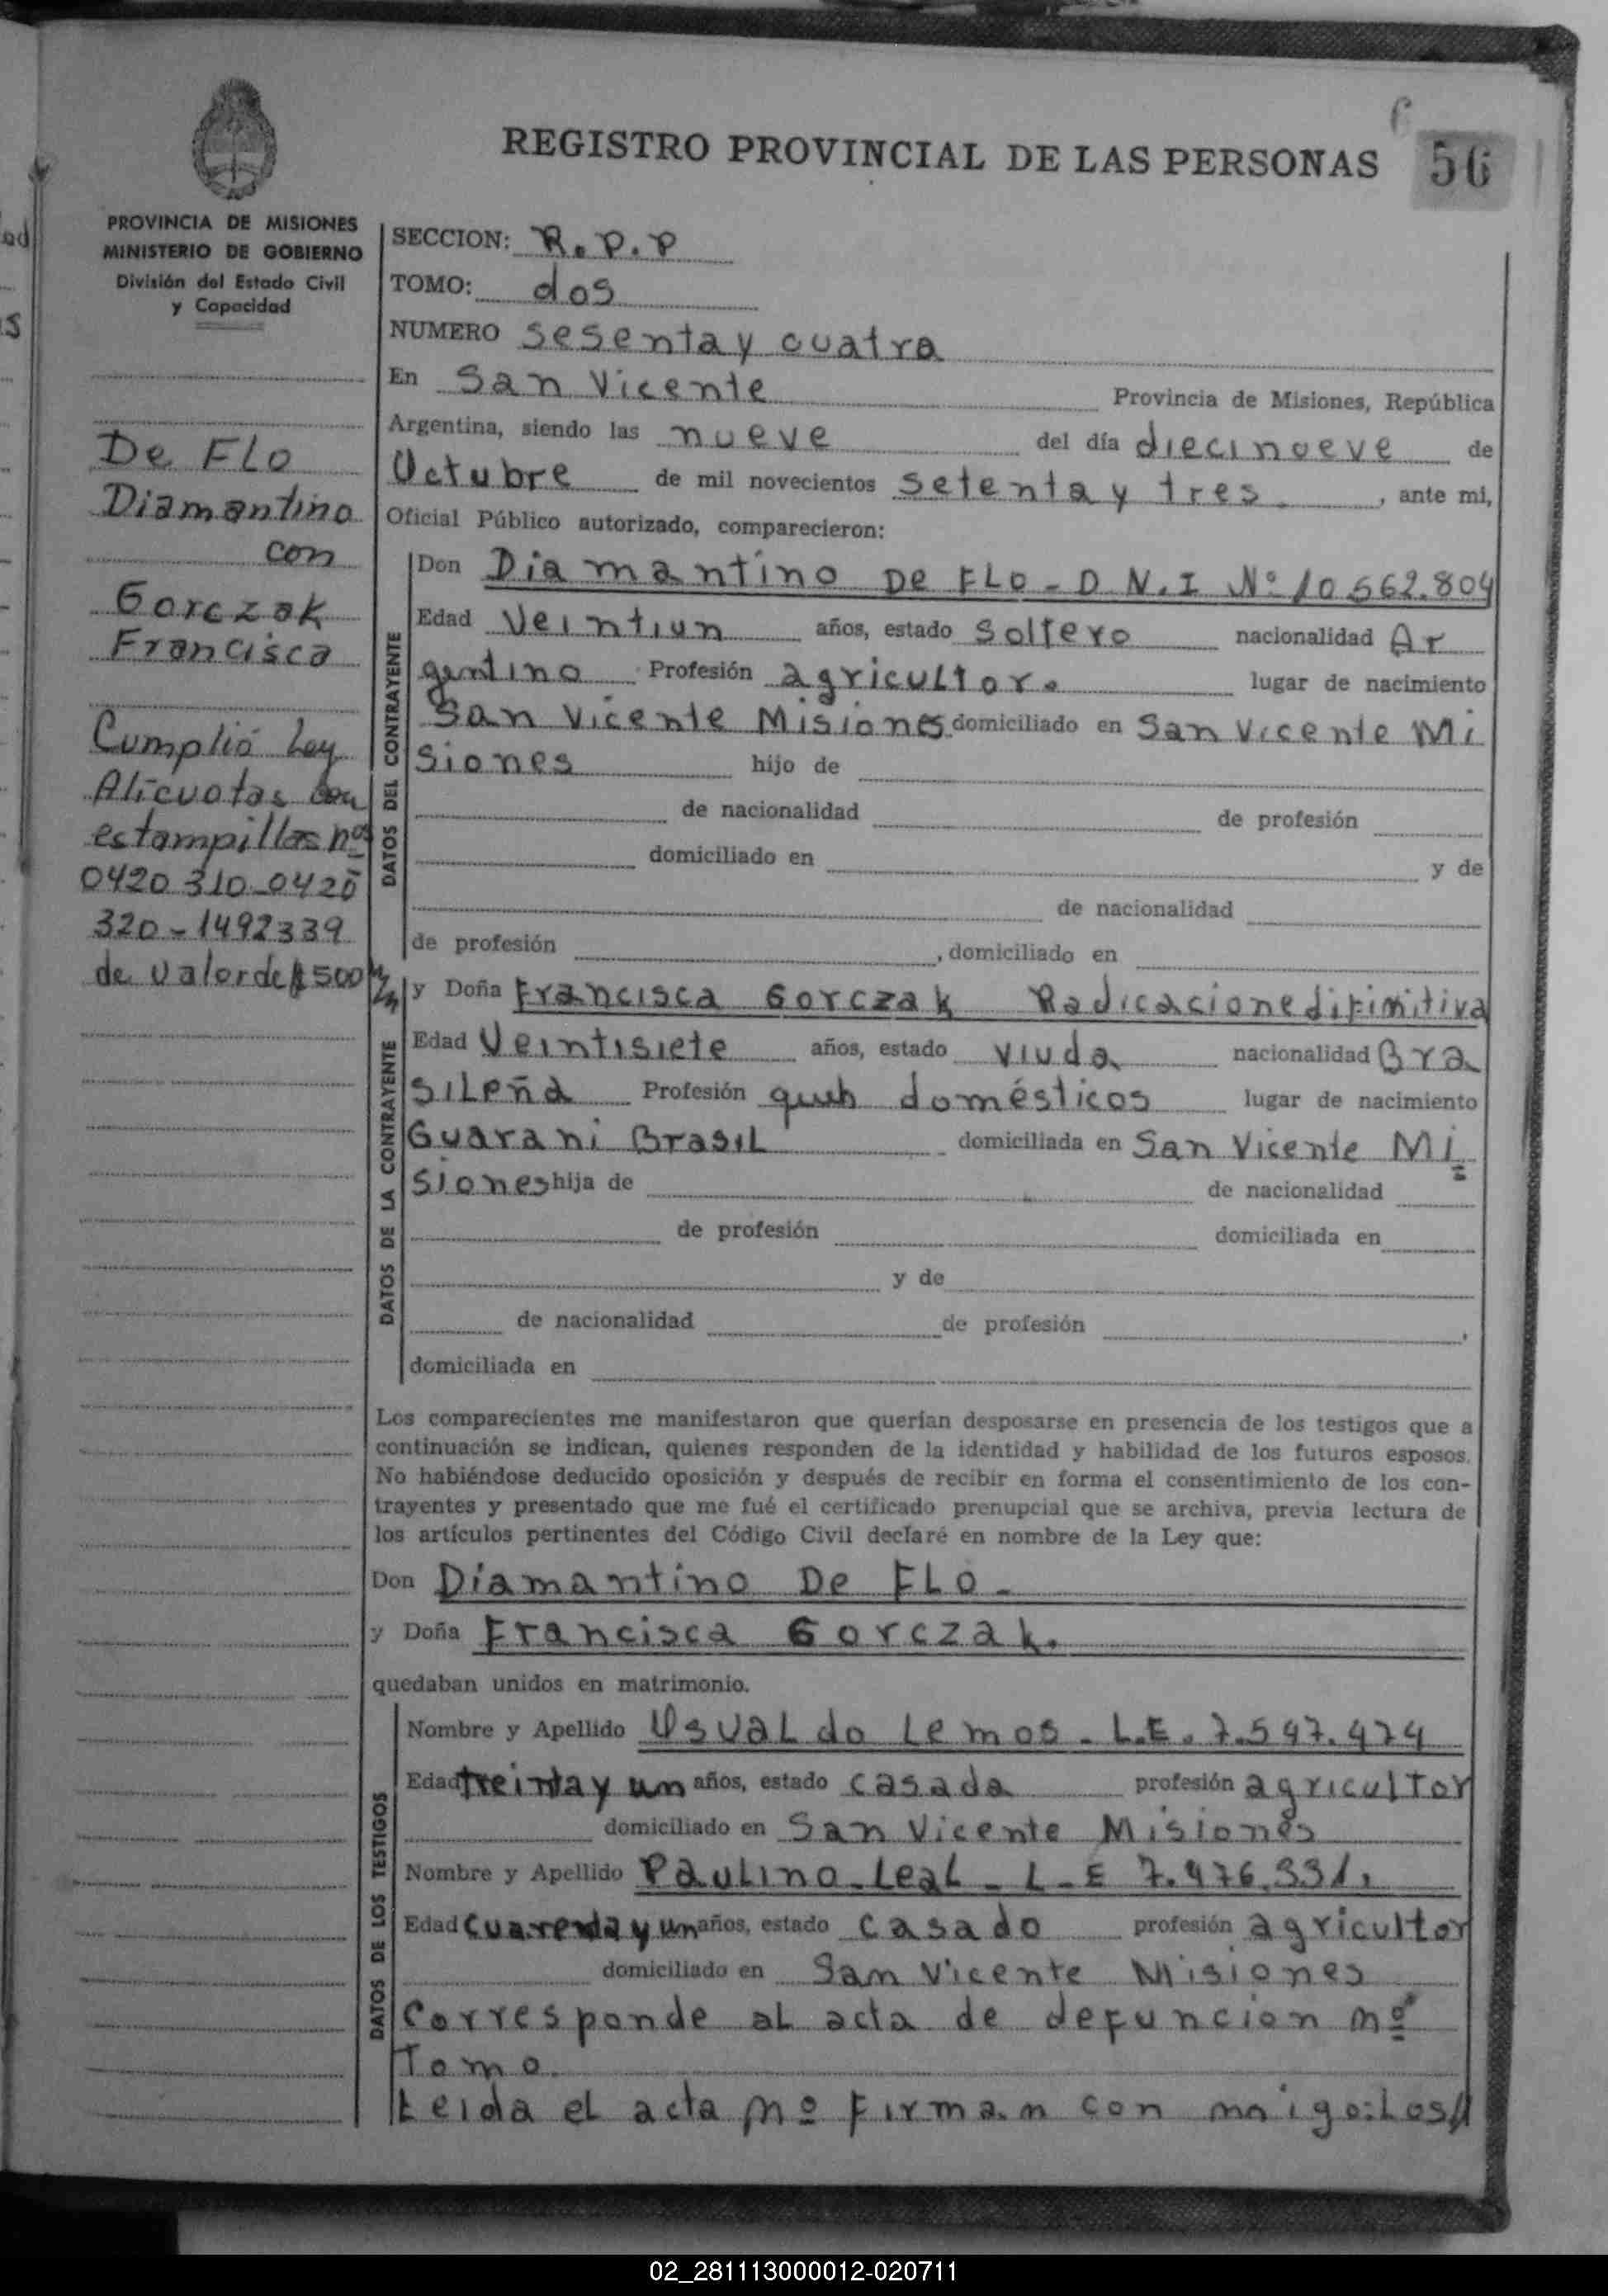 REGISTRO PROVINCIAL DE LAS PERSONAS
56
PROVINCIA DE MISIONES
MINISTERIO DE GOBIERNO
División del Estado Civil
y Capacidad
De Flo
Diamantino
con
Gorczak
Francisca
Cumplió Ley
Alicuotas con
estampillas nos
0420 310-0420
320-1492339
de valor de $ 500 m/n
SECCION: R.P.P
TOMO: dos
NUMERO sesenta y cuatra
En San Vicente Provincia de Misiones, República
Argentina, siendo las nueve del día diecinueve de
Octubre de mil novecientos setenta y tres. , ante mi,
Oficial Público autorizado, comparecieron:
DATOS DEL CONTRAYENTE
Don Diamantino De FLO - D N.I Nº 10.562.804
Edad Veintiun años, estado Soltero nacionalidad Ar
gentino Profesión agricultor. lugar de nacimiento
San Vicente Misiones domiciliado en San Vicente Mi
siones hijo de
de nacionalidad de profesión
domiciliado en y de
de nacionalidad
de profesión , domiciliado en
DATOS DE LA CONTRAYENTE
y Doña Francisca Gorczak Radicacione difinitiva
Edad Veintisiete años, estado viuda nacionalidad Bra
sileña Profesión queh domésticos lugar de nacimiento
Guarani Brasil domiciliada en San Vicente Mi
siones hija de de nacionalidad
de profesión domiciliada en
y de
de nacionalidad de profesión ,
domiciliada en
Los comparecientes me manifestaron que querían desposarse en presencia de los testigos que a
continuación se indican, quienes responden de la identidad y habilidad de los futuros esposos.
No habiéndose deducido oposición y después de recibir en forma el consentimiento de los con-
trayentes y presentado que me fué el certificado prenupcial que se archiva, previa lectura de
los artículos pertinentes del Código Civil declaré en nombre de la Ley que:
Don Diamantino De FLO -
y Doña Francisca Gorczak.
quedaban unidos en matrimonio.
DATOS DE LOS TESTIGOS
Nombre y Apellido Osualdo Lemos - L.E. 7.547.474
Edad treinta y un años, estado casada profesión agricultor
domiciliado en San Vicente Misiones
Nombre y Apellido Paulino Leal - L-E 7.476.331,
Edad cuarenta y un años, estado casado profesión agricultor
domiciliado en San Vicente Misiones
Corresponde al acta de defuncion nº
Tomo.
Leida el acta nº firman con migo: Los//
02_281113000012-020711